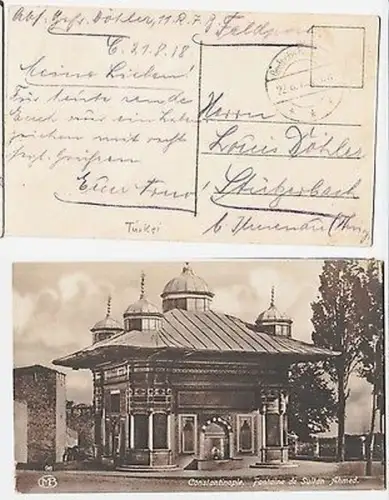 Abs. Gefr. Döhler, 11. R. 7.
Feldpost
C. 21.8.18
Meine Lieben!
Für heute sende
Euch nur ein Lebens
zeichen mit recht
hzl. Grüßen
Euer
Herrn
Louis Döhler
Stützerbach
b. Ilmenau (Thrg
Türkei
96
MB
Constantinople. Fontaine de Sultan Ahmed.